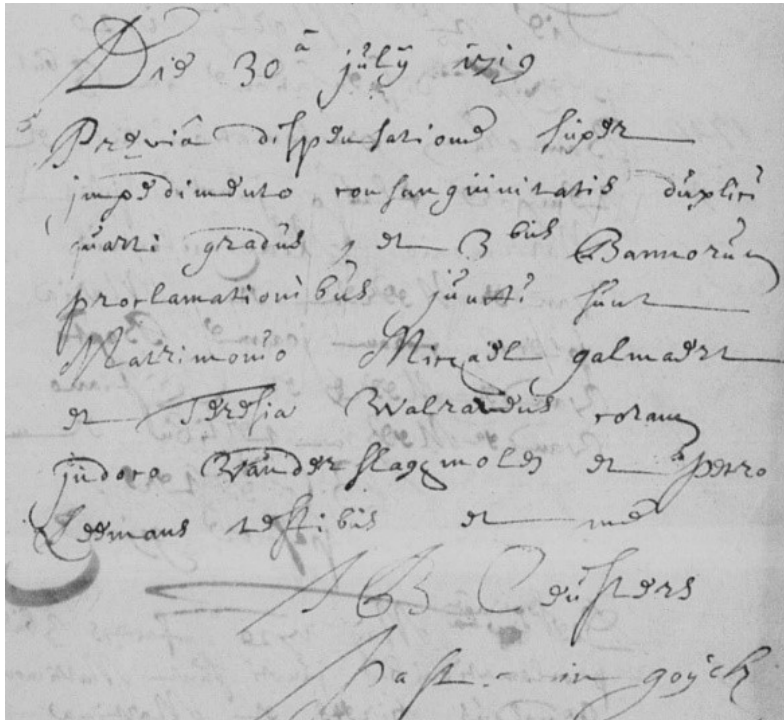 Die 30â july 1719
Previâ dispensatione super
impedimento consanguinitatis duplici
quarti gradus, et 3bus Bannorum
proclamationibus juncti sunt
Matrimonio Michaël galmaert
et Teresia Walravens coram
judoco Vander slaghmolen et petro
Leemans testibus et me
B Ceusters
Past. in goÿck